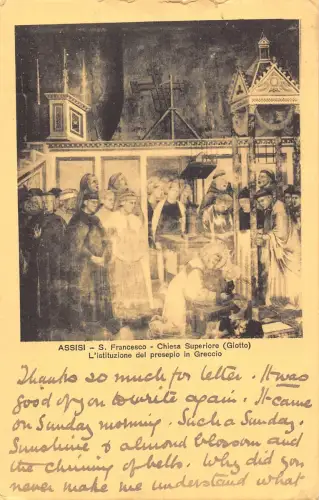 ASSISI - S. Francesco - Chiesa Superiore (Giotto)
L'istituzione del presepio in Greccio
Thanks so much for letter. It was
good of you to write again. It came
on Sunday morning. Such a Sunday.
Sunshine & almond blossom and
the chiming of bells. Why did you
never make me understand what